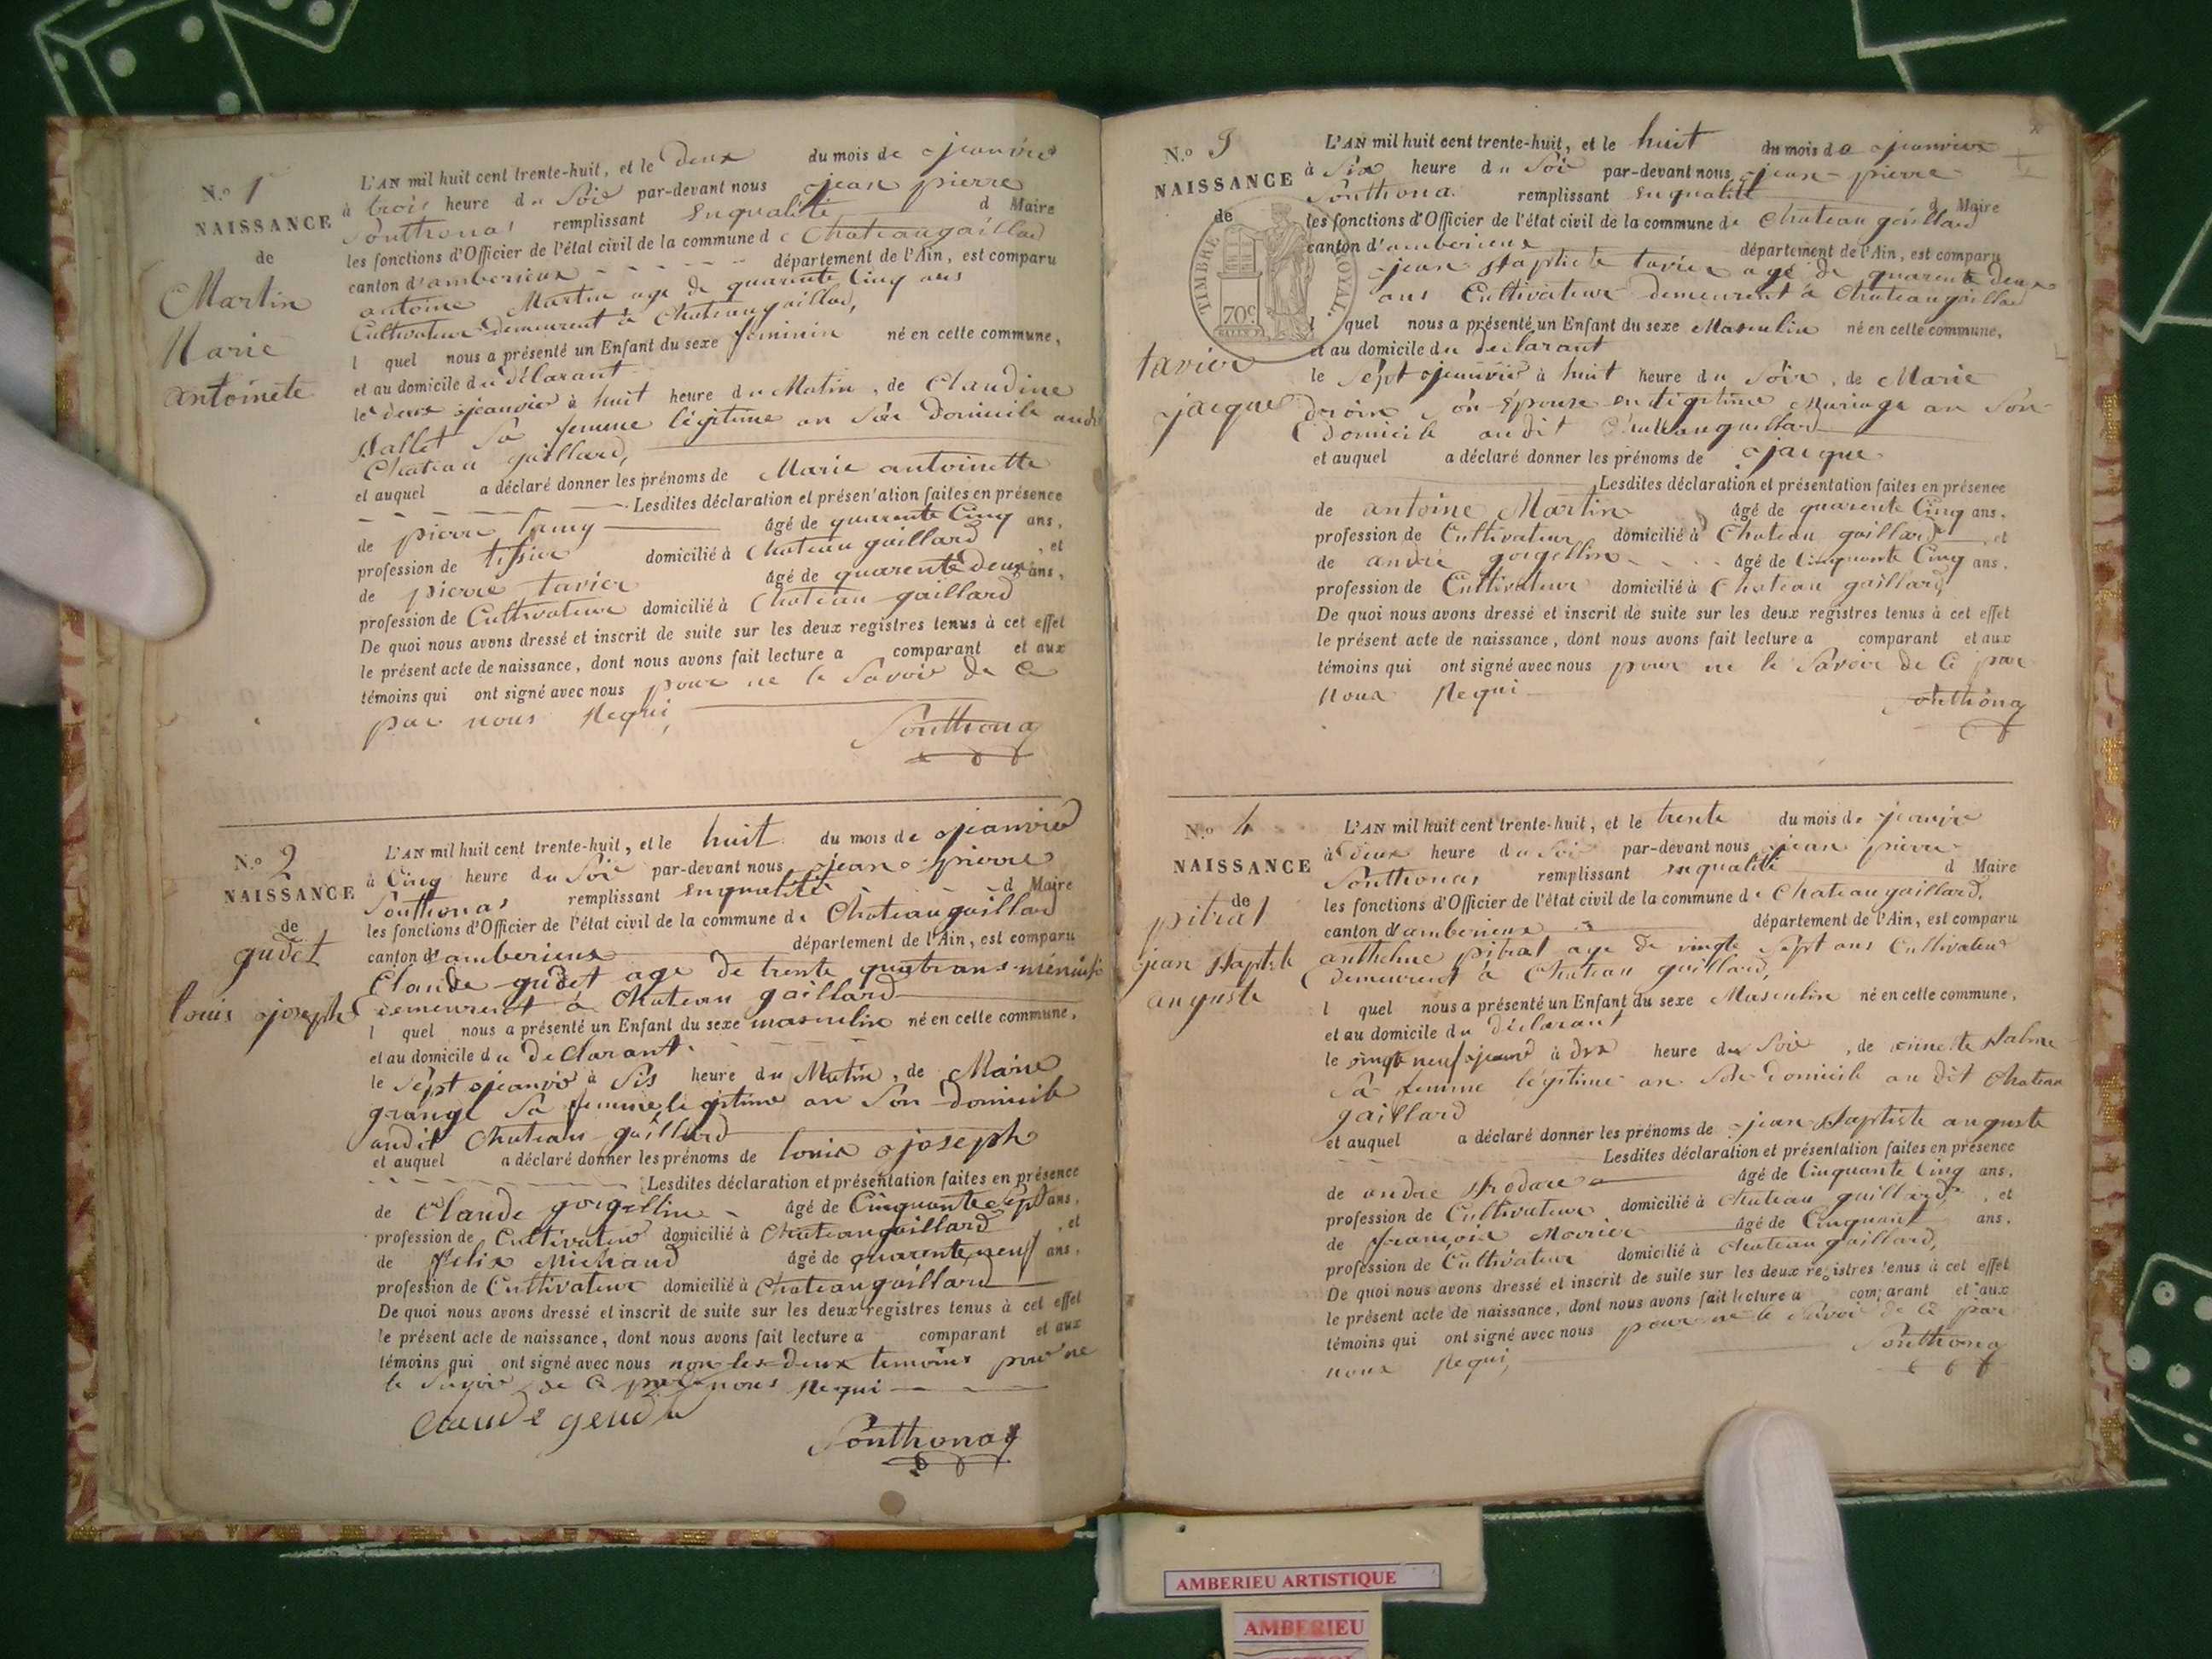 N.o 1
NAISSANCE
de
Martin
Marie
antoinete
L'AN mil huit cent trente-huit, et le deux du mois de jeanvier
à trois heure du Soir par-devant nous jean pierre
Ponthonas remplissant en qualité d Maire
les fonctions d'Officier de l'état civil de la commune de Chateaugaillard
canton d'amberieux département de l'Ain, est comparu
antoine Martin age de quarente Cinq ans
Cultivateur demeurent à Chateaugaillard,
l quel nous a présenté un Enfant du sexe feminin né en cette commune,
et au domicile du déclarant
le deux jeanvier à huit heure du Matin, de Claudine
Ballet Sa femme légitime an Son Domicile audit
Chateau gaillard,
et auquel a déclaré donner les prénoms de Marie antoinette
Lesdites déclaration et présentation faites en présence
de pierre âgé de quarente Cinq ans,
profession de tissier domicilié à Chateau gaillard, et
de pierre tavier âgé de quarente Deux ans,
profession de Cultivateur domicilié à Chateau gaillard
De quoi nous avons dressé et inscrit de suite sur les deux registres tenus à cet effet
le présent acte de naissance, dont nous avons fait lecture a comparant et aux
témoins qui ont signé avec nous pour ne le Savoir de Ce
par nous Requi,
Ponthonas
N.o 2
NAISSANCE
de
gudet
louis joseph
L'AN mil huit cent trente-huit, et le huit du mois de jeanvier
à Cinq heure du Soir par-devant nous jean pierre
Ponthonas remplissant en qualité d Maire
les fonctions d'Officier de l'état civil de la commune de Chateaugaillard
canton d'amberieux département de l'Ain, est comparu
Claude gudet age de trente quatrans
demeurent à Chateau gaillard
l quel nous a présenté un Enfant du sexe masculin né en cette commune,
et au domicile du Declarant
le Sept jeanvier à Sis heure du Matin, de Marie
grange Sa femme legitime an Son domicile
audit Chateau gaillard
et auquel a déclaré donner les prénoms de louis joseph
Lesdites déclaration et présentation faites en présence
de Claude gorgellin âgé de Cinquante Sept ans,
profession de Cultivateur domicilié à Chateaugaillard, et
de felix Michaud âgé de quarente neuf ans,
profession de Cultivateur domicilié à Chateaugaillard
De quoi nous avons dressé et inscrit de suite sur les deux registres tenus à cet effet
le présent acte de naissance, dont nous avons fait lecture a comparant et aux
témoins qui ont signé avec nous non les deux temoins pour ne
le Savoir de Ce par nous Requi
Claude
Ponthonas
N.o 3
NAISSANCE
de
TIMBRE ROYAL.
70c
tavier
jacque
L'AN mil huit cent trente-huit, et le huit du mois de jeanvier
à Six heure du Soir par-devant nous jean pierre
Ponthonas remplissant en qualité d Maire
les fonctions d'Officier de l'état civil de la commune de Chateau gaillard
canton d'amberieux département de l'Ain, est comparu
jean Baptiste tavier agé de quarente deux
ans Cultivateur demeurent à Chateaugaillard
l quel nous a présenté un Enfant du sexe Masculin né en cette commune,
et au domicile du déclarant
le Sept jeanvier à huit heure du Soir, de Marie
droin Son Épouse en légitime Mariage an Son
Domicile audit Chateaugaillard
et auquel a déclaré donner les prénoms de jacque
Lesdites déclaration et présentation faites en présence
de antoine Martin âgé de quarente Cinq ans,
profession de Cultivateur domicilié à Chateau gaillard, et
de andré gorgellin âgé de Cinquante Cinq ans,
profession de Cultivateur domicilié à Chateau gaillard
De quoi nous avons dressé et inscrit de suite sur les deux registres tenus à cet effet
le présent acte de naissance, dont nous avons fait lecture a comparant et aux
témoins qui ont signé avec nous pour ne le Savoir de Ce par
Nous Requi
Ponthonas
N.o 4
NAISSANCE
de
pitrat
jean Baptiste
auguste
L'AN mil huit cent trente-huit, et le trente du mois de
à deux heure du Soir par-devant nous jean pierre
Ponthonas remplissant en qualité d Maire
les fonctions d'Officier de l'état civil de la commune de Chateaugaillard,
canton d'amberieux département de l'Ain, est comparu
anthelme pitrat age de vingte Sept ans Cultivateur
demeurent à Chateau gaillard,
l quel nous a présenté un Enfant du sexe Masculin né en cette commune,
et au domicile du déclarant
le vingte neuf à dix heure du Soir, de
Sa femme légitime an Son Domicile au dit Chateau
gaillard
et auquel a déclaré donner les prénoms de jean Baptiste auguste
Lesdites déclaration et présentation faites en présence
de andré âgé de Cinquante Cinq ans,
profession de Cultivateur domicilié à Chateau gaillard, et
de françois Movier âgé de Cinquant ans,
profession de Cultivateur domicilié à Chateau gaillard,
De quoi nous avons dressé et inscrit de suite sur les deux registres tenus à cet effet
le présent acte de naissance, dont nous avons fait lecture a comparant et aux
témoins qui ont signé avec nous pour ne le Savoir de Ce par
nous Requi,
Ponthonas
AMBERIEU ARTISTIQUE
AMBERIEU